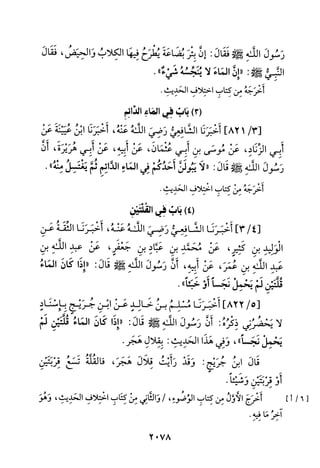 رَسُولَ اللَّهِ ﷺ فَقَالَ: إنَّ بِئْرَ بُضَاعَةَ يُطْرَحُ فِيهَا الكِلَابُ وَالحِيَضُ، فَقَالَ
النَّبِيُّ ﷺ: «إِنَّ المَاءَ لَا يُنَجِّسُهُ شَيْءٌ».
أَخْرَجَهُ مِنْ كِتَابِ اخْتِلافِ الحَدِيثِ.
(٣) بَابٌ فِي المَاءِ الدَّائِمِ
[٨٢١/٣] أَخْبَرَنَا الشَّافِعِيُّ رَضِيَ اللَّهُ عَنْهُ، أَخْبَرَنَا ابْنُ عُيَيْنَةَ عَنْ
أَبِي الزِّنَادِ، عَنْ مُوسَى بنِ أَبِي عُثْمَانَ، عَنْ أَبِيهِ، عَنْ أَبِي هُرَيْرَةَ، أَنَّ
رَسُولَ اللَّهِ ﷺ قَالَ: «لَا يَبُولَنَّ أَحَدُكُمْ فِي المَاءِ الدَّائِمِ ثُمَّ يَغْتَسِلُ مِنْهُ».
أَخْرَجَهُ مِنْ كِتَابِ اخْتِلافِ الحَدِيثِ.
(٤) بَابٌ فِي القُلَّتَيْنِ
[٣/٤] أَخْبَرَنَا الشَّافِعِيُّ رَضِيَ اللَّهُ عَنْهُ، أَخْبَرَنَا الثِّقَةُ عَنِ
الوَلِيدِ بنِ كَثِيرٍ، عَنْ مُحَمَّدِ بنِ عَبَّادِ بنِ جَعْفَرٍ، عَنْ عبدِ اللَّهِ بنِ
عَبدِ اللَّهِ بنِ عُمَرَ، عَنْ أَبِيهِ، أَنَّ رَسُولَ اللَّهِ ﷺ قَالَ: «إِذَا كَانَ المَاءُ
قُلَّتَيْنِ لَمْ يَحْمِلْ نَجَساً أَوْ خَبَثاً».
[٨٢٢/٥] أَخْبَرَنَا مُسْلِمُ بنُ خَالِدٍ عَنْ ابْنِ جُرَيْجٍ بِإِسْنَادٍ
لا يَحْضُرُنِي ذِكْرُهُ: أَنَّ رَسُولَ اللَّهِ ﷺ قَالَ: «إِذَا كَانَ المَاءُ قُلَّتَيْنِ لَمْ
يَحْمِلْ نَجَساً»، وَفِي هَذَا الحَدِيثِ: بِقِلالِ هَجَرَ.
قَالَ ابنُ جُرَيْجٍ: وَقَدْ رَأَيْتُ قِلَالَ هَجَرَ، فالقُلَّةُ تَسَعُ قِرْبَتَيْنِ
أَوْ قِرْبَتَيْنِ وَشَيْئاً.
أَخْرَجَ الأَوَّلَ مِن كِتَابِ الوُضُوءِ، / وَالثَّانِي مِنْ كِتَابِ اخْتِلافِ الحَدِيثِ، وَهُوَ [٦/أ]
آخِرُ مَا فِيهِ.
٢٠٧٨